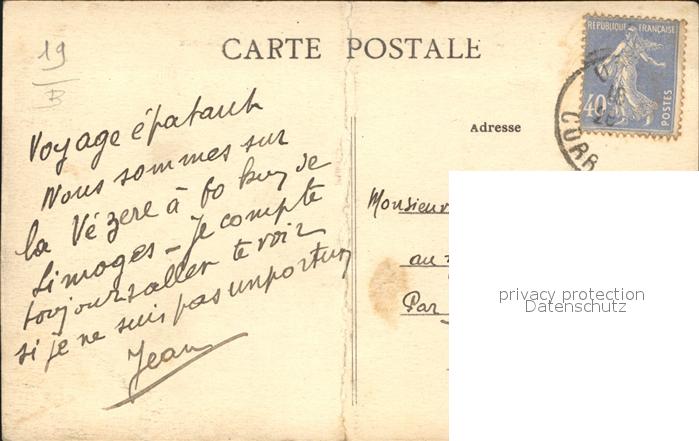 19
B
CARTE POSTALE
REPUBLIQUE FRANÇAISE
40c
POSTES
CORR
Adresse
Voyage épatant
Nous sommes sur
la Vézere à 60 km de
Limoges - Je compte
toujours aller te voir
si je ne suis pas importun
Jean
Monsieur
au
Par
privacy protection
Datenschutz